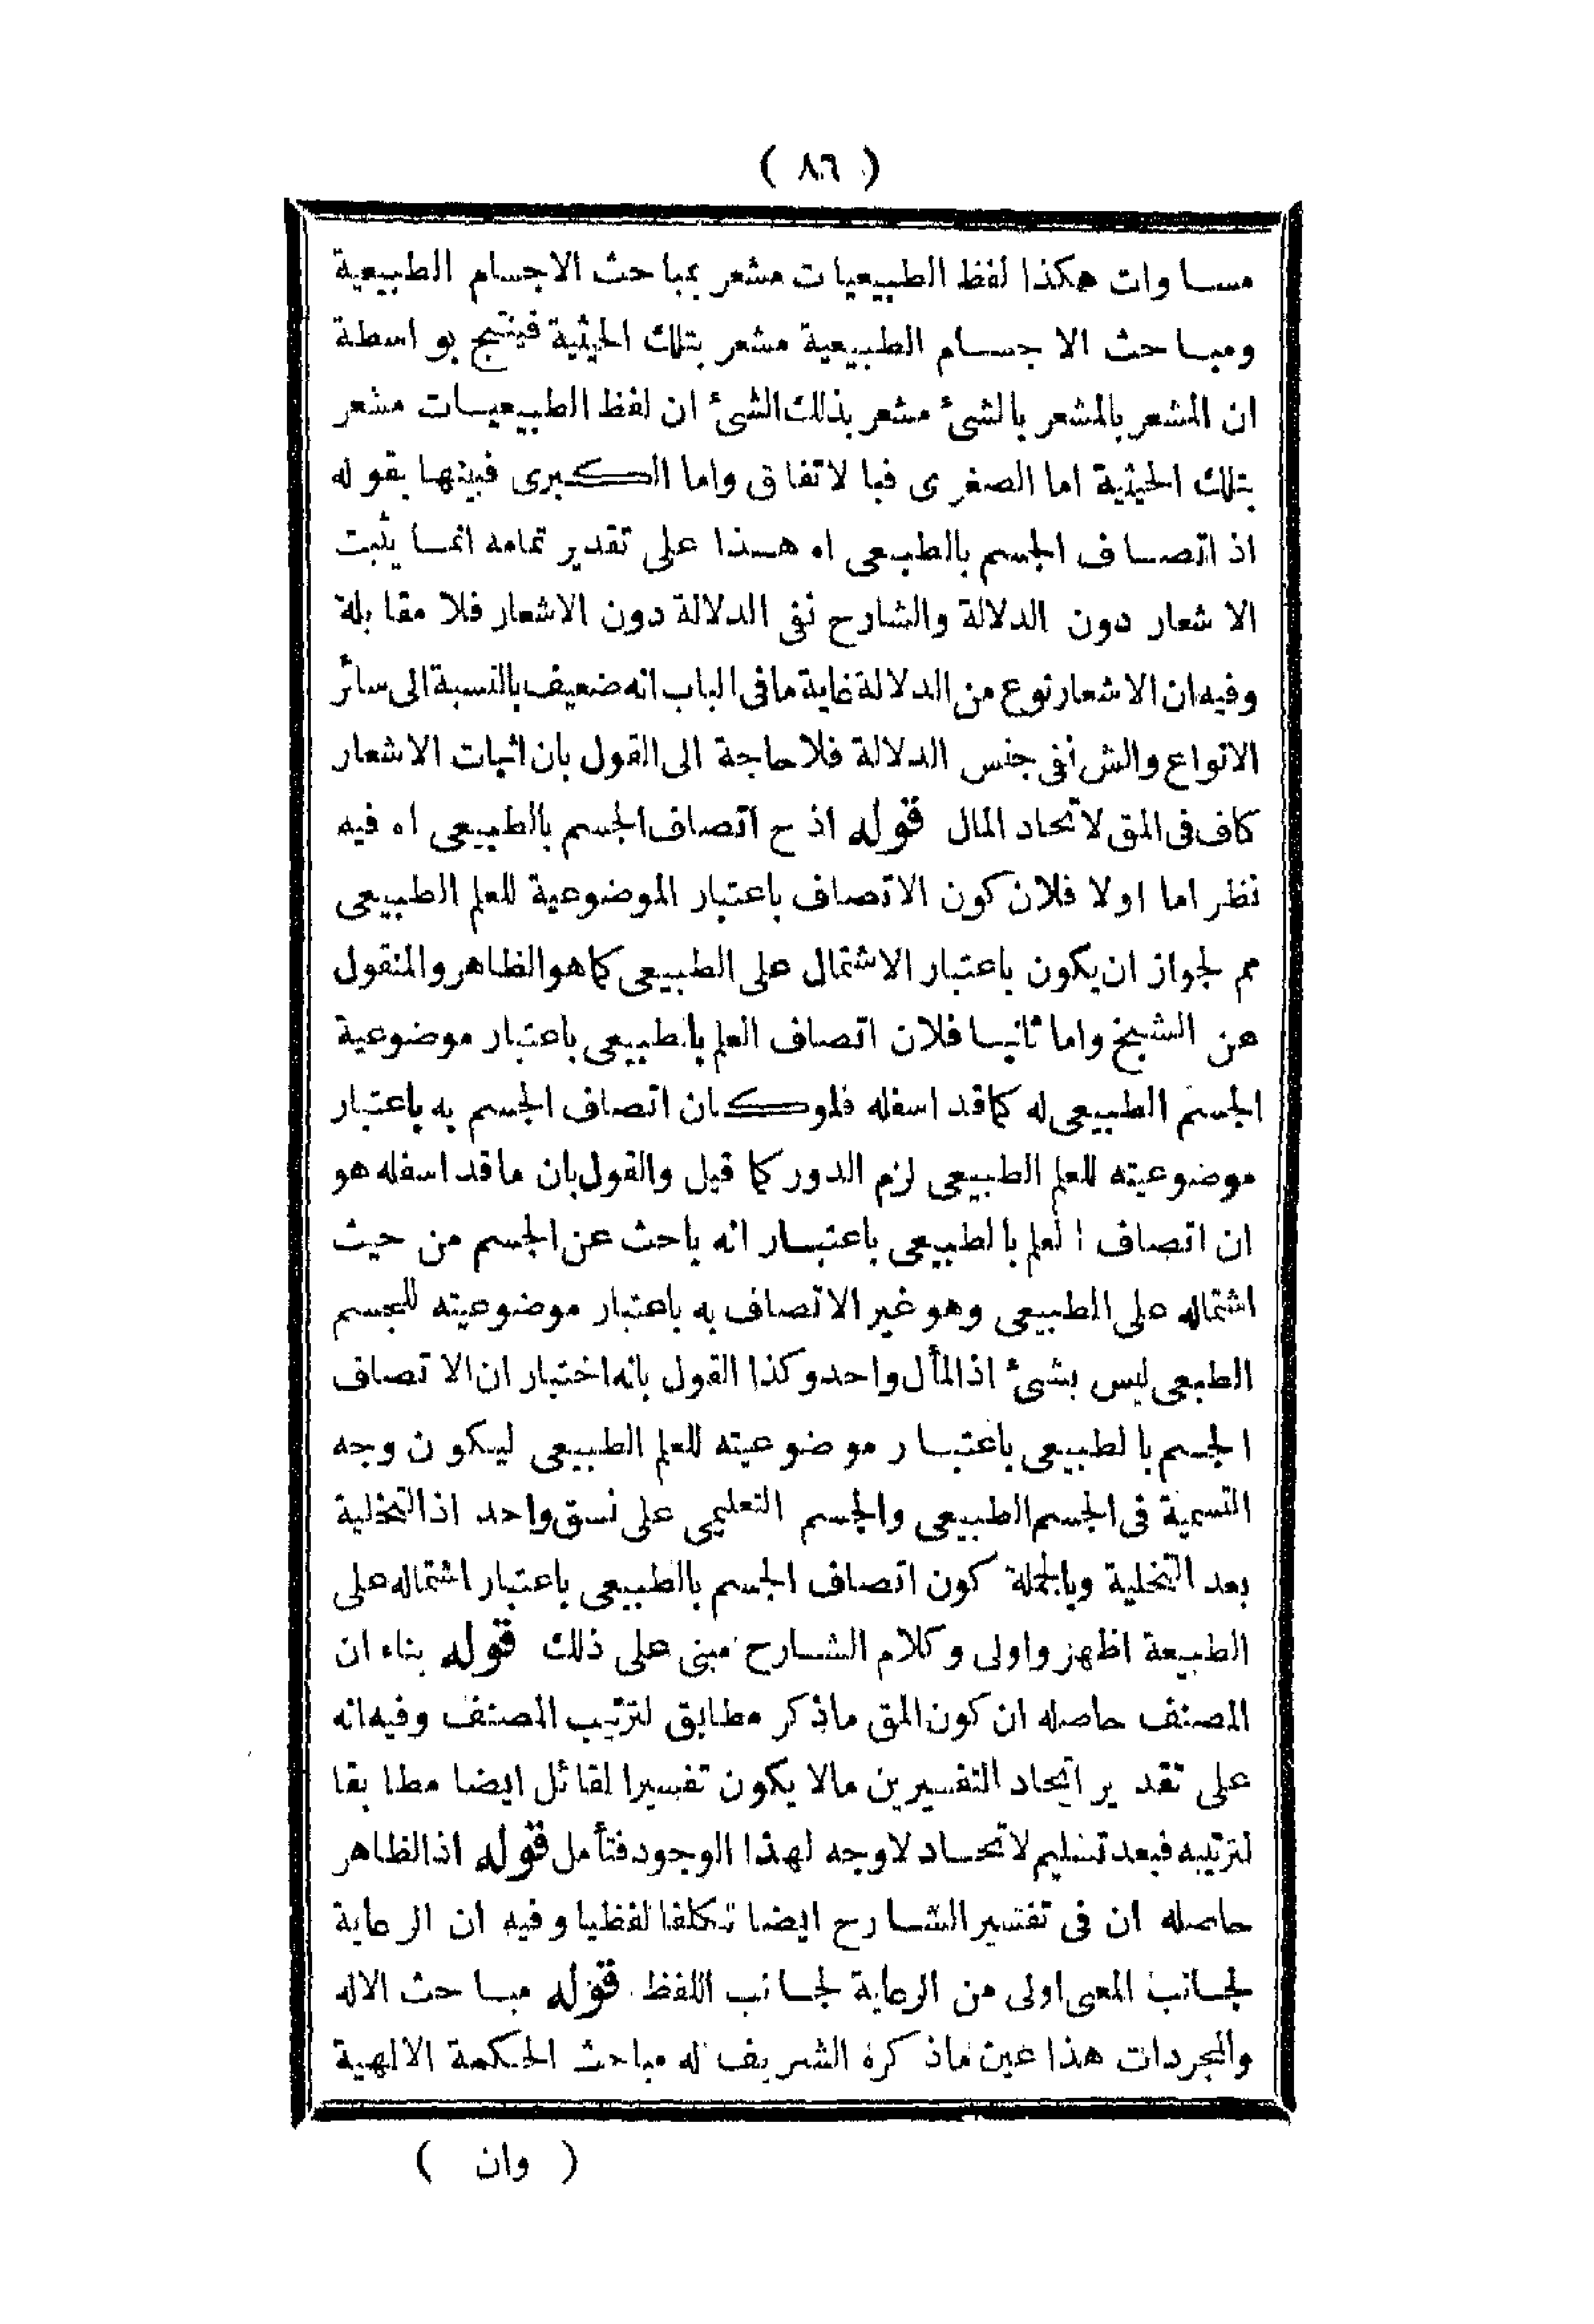 ( ٨٦ )
مساوات هكذا لفظ الطبيعيات مشعر بمباحث الاجسام الطبيعية
ومباحث الاجسام الطبيعية مشعر بتلك الحيثية فينتج بواسطة
ان المشعر بالمشعر بالشئ مشعر بذلك الشئ ان لفظ الطبيعيات مشعر
بتلك الحيثية اما الصغرى فبالاتفاق واما الكبرى فبينها بقوله
اذ اتصاف الجسم بالطبيعى اه هذا على تقدير تمامه انما يثبت
الاشعار دون الدلالة والشارح نفى الدلالة دون الاشعار فلا مقابلة
وفيه ان الاشعار نوع من الدلالة غاية مافى الباب انه ضعيف بالنسبة الى سائر
الانواع والش نفى جنس الدلالة فلا حاجة الى القول بان اثبات الاشعار
كاف فى المق لاتحاد المال قوله اذ ح اتصاف الجسم بالطبيعى اه فيه
نظر اما اولا فلان كون الاتصاف باعتبار الموضوعية للعلم الطبيعى
مم لجواز ان يكون باعتبار الاشتمال على الطبيعى كما هو الظاهر والمنقول
عن الشيخ واما ثانيا فلان اتصاف العلم بالطبيعى باعتبار موضوعية
الجسم الطبيعى له كما قد اسفله فلو كان اتصاف الجسم به باعتبار
موضوعيته للعلم الطبيعى لزم الدور كما قيل والقول بان ما قد اسفله هو
ان اتصاف العلم بالطبيعى باعتبار انه باحث عن الجسم من حيث
اشتماله على الطبيعى وهو غير الاتصاف به باعتبار موضوعيته للجسم
الطبعى ليس بشئ اذ المأل واحد وكذا القول بانه اختبار ان الاتصاف
الجسم بالطبيعى باعتبار موضوعيته للعلم الطبيعى ليكون وجه
التسمية فى الجسم الطبيعى والجسم التعليمى على نسق واحد اذ التخلية
بعد التخلية وبالجملة كون اتصاف الجسم بالطبيعى باعتبار اشتماله على
الطبيعة اظهر واولى وكلام الشارح مبنى على ذلك قوله بناء ان
المصنف حاصله ان كون المق ماذكر مطابق لترتيب المصنف وفيه انه
على تقدير اتحاد التفسيرين مالا يكون تفسيرا لقائل ايضا مطابقا
لترتيبه فبعد تسليم لاتحاد لاوجه لهذا الوجود فتأمل قوله اذ الظاهر
حاصله ان فى تفسير الشارح ايضا تكلفا لفظيا وفيه ان الرعاية
لجانب المعنى اولى من الرعاية لجانب اللفظ قوله مباحث الاله
والمجردات هذا عين ماذكره الشريف له مباحث الحكمة الالهية
( وان )